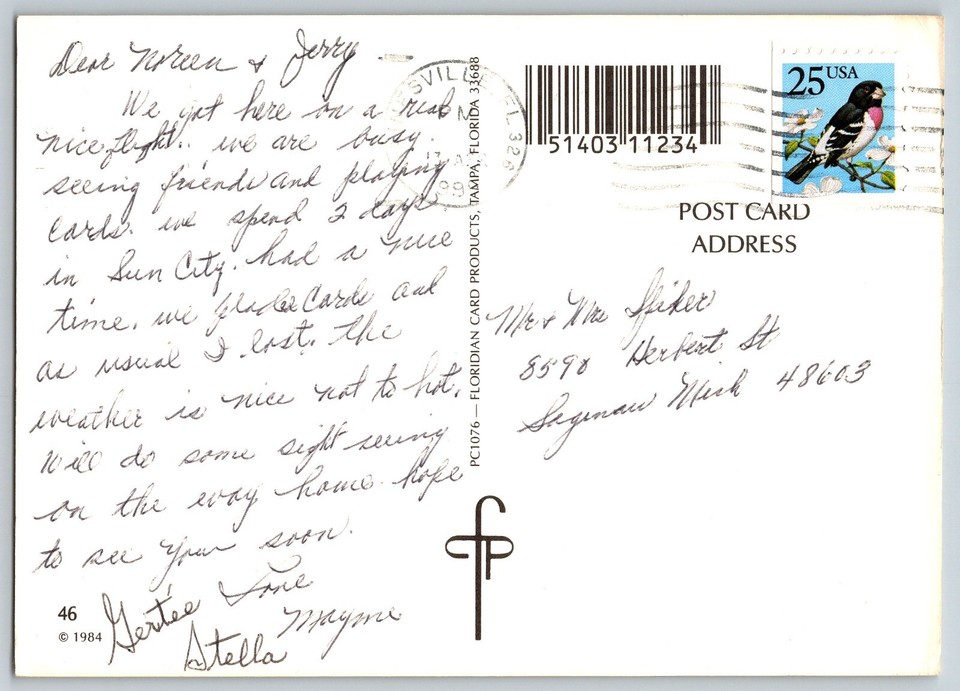 Dear Noreen & Jerry
We got here on a real
nice flight. we are busy
seeing friends and playing
Cards. we spend 2 days
in Sun City. had a nice
time. we Cards and
as usual I lost. the
weather is nice not to hot.
Will do some sight seeing
on the way home. hope
to see your soon.
Love
Gertée
Mayme
Stella
46
© 1984
PC1076 — FLORIDIAN CARD PRODUCTS, TAMPA, FLORIDA 33688
SVILLE, FL 326
51403 11234
25 USA
POST CARD
ADDRESS
Mr & Mrs Spiker
8590 Herbert St
Saginaw Mich 48603
cfp